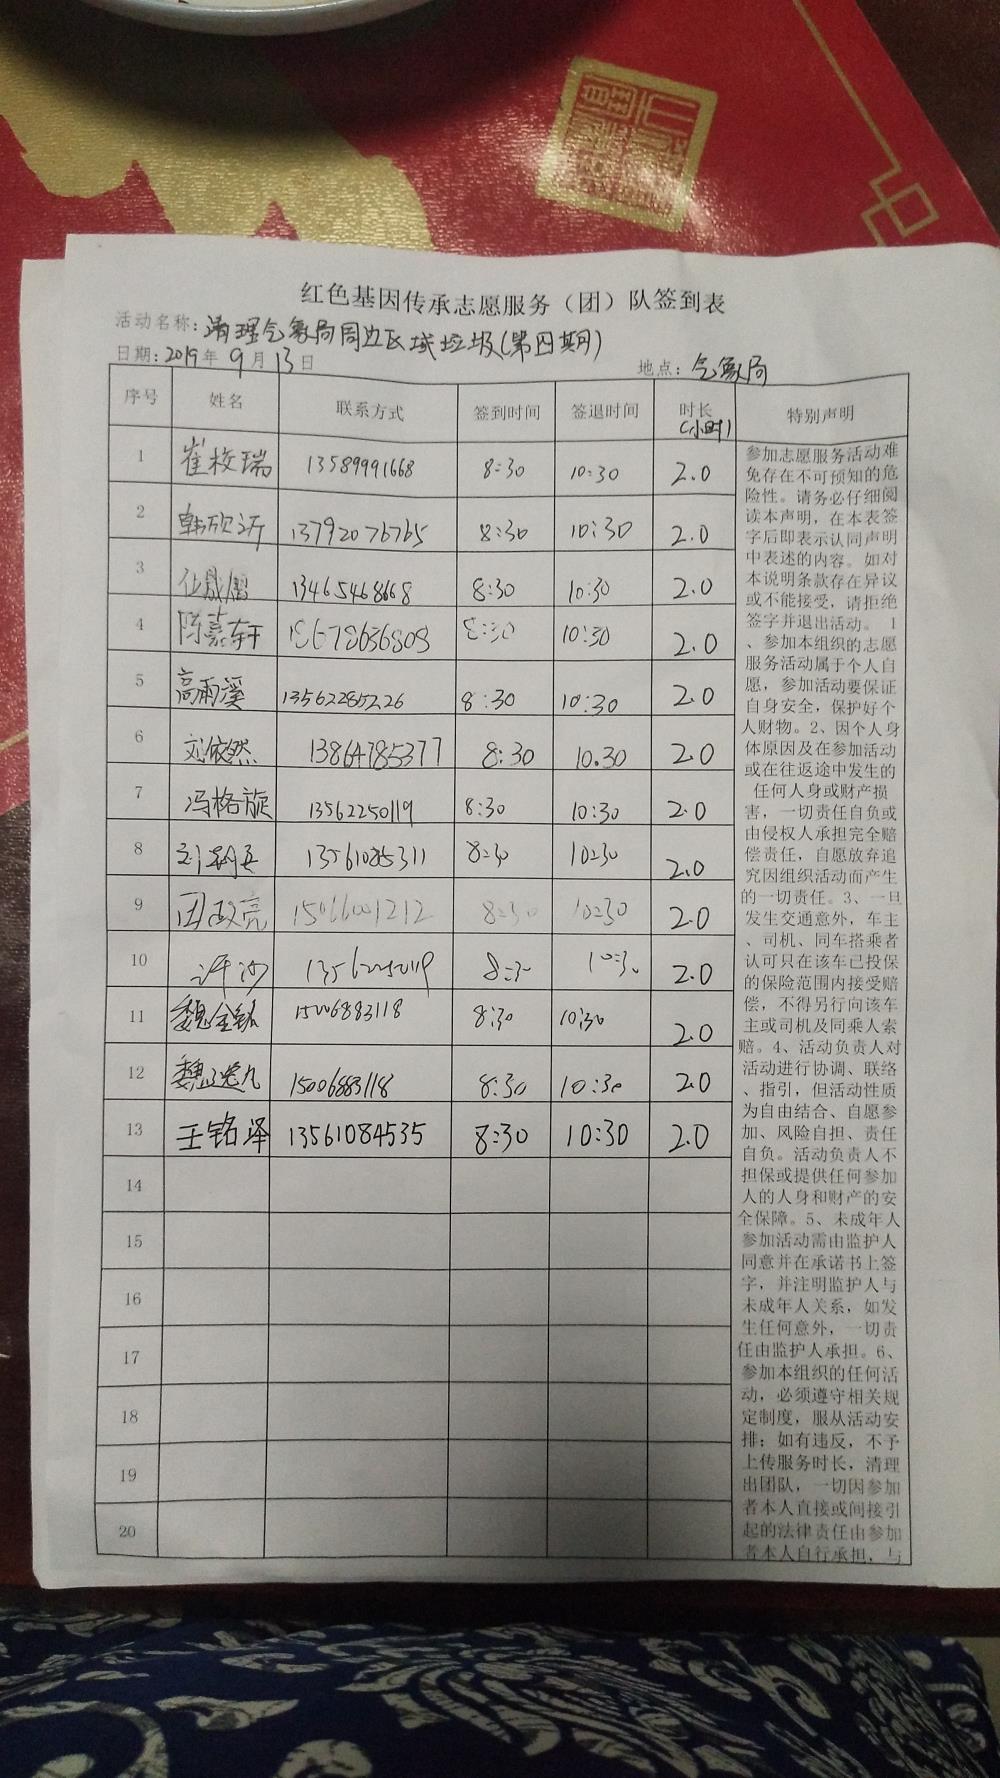 红色基因传承志愿服务（团）队签到表
活动名称：清理气象局周边区域垃圾(第四期)
日期：2019年9月13日 地点：气象局
序号 姓名 联系方式 签到时间 签退时间 时长(小时) 特别声明
1 崔校瑞 13589991668 8:30 10:30 2.0
2 韩欣沂 13792076765 8:30 10:30 2.0
3 13465468668 8:30 10:30 2.0
4 陈嘉轩 18678636808 8:30 10:30 2.0
5 高雨溪 13562285226 8:30 10:30 2.0
6 刘依然 13864785377 8:30 10.30 2.0
7 冯格旋 13562250119 8:30 10:30 2.0
8 13561085311 8:30 10:30 2.0
9 15066001212 8:30 10:30 2.0
10 许沙 13562250119 8:30 10:30 2.0
11 15006883118 8:30 10:30 2.0
12 15006883118 8:30 10:30 2.0
13 王铭泽 13561084535 8:30 10:30 2.0
14
15
16
17
18
19
20
参加志愿服务活动难
免存在不可预知的危
险性。请务必仔细阅
读本声明，在本表签
字后即表示认同声明
中表述的内容。如对
本说明条款存在异议
或不能接受，请拒绝
签字并退出活动。 1
、参加本组织的志愿
服务活动属于个人自
愿，参加活动要保证
自身安全，保护好个
人财物。2、因个人身
体原因及在参加活动
或在往返途中发生的
任何人身或财产损
害，一切责任自负或
由侵权人承担完全赔
偿责任，自愿放弃追
究因组织活动而产生
的一切责任。3、一旦
发生交通意外，车主
、司机、同车搭乘者
认可只在该车已投保
的保险范围内接受赔
偿，不得另行向该车
主或司机及同乘人索
赔。4、活动负责人对
活动进行协调、联络
、指引，但活动性质
为自由结合、自愿参
加、风险自担、责任
自负。活动负责人不
担保或提供任何参加
人的人身和财产的安
全保障。5、未成年人
参加活动需由监护人
同意并在承诺书上签
字，并注明监护人与
未成年人关系，如发
生任何意外，一切责
任由监护人承担。6、
参加本组织的任何活
动，必须遵守相关规
定制度，服从活动安
排；如有违反，不予
上传服务时长，清理
出团队，一切因参加
者本人直接或间接引
起的法律责任由参加
者本人自行承担，与